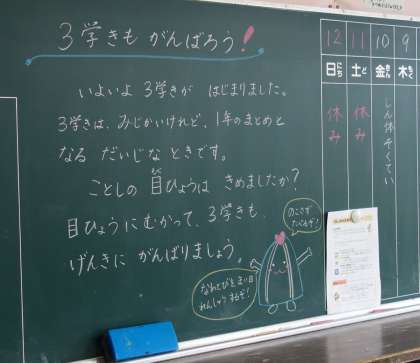 3学きも がんばろう!
いよいよ 3学きが はじまりました。
3学きは、みじかいけれど、1年のまとめと
なる だいじな ときです。
ことしの 目ひょうは きめましたか?
目ひょうにむかって、3学きも、
げんきに がんばりましょう。
のこさず
たべるぞ!
なわとびを まい日
れんしゅうするぞ!
12 11 10 9
日にち 土ど 金きん 木もく
休み
休み
しん体そくてい